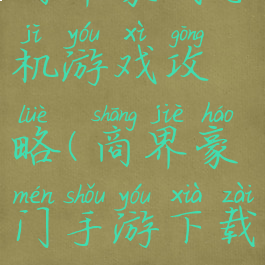 jī yóu xì gōng
机游戏攻
lüè shāng jiè háo
略(商界豪
mén shǒu yóu xià zài
门手游下载